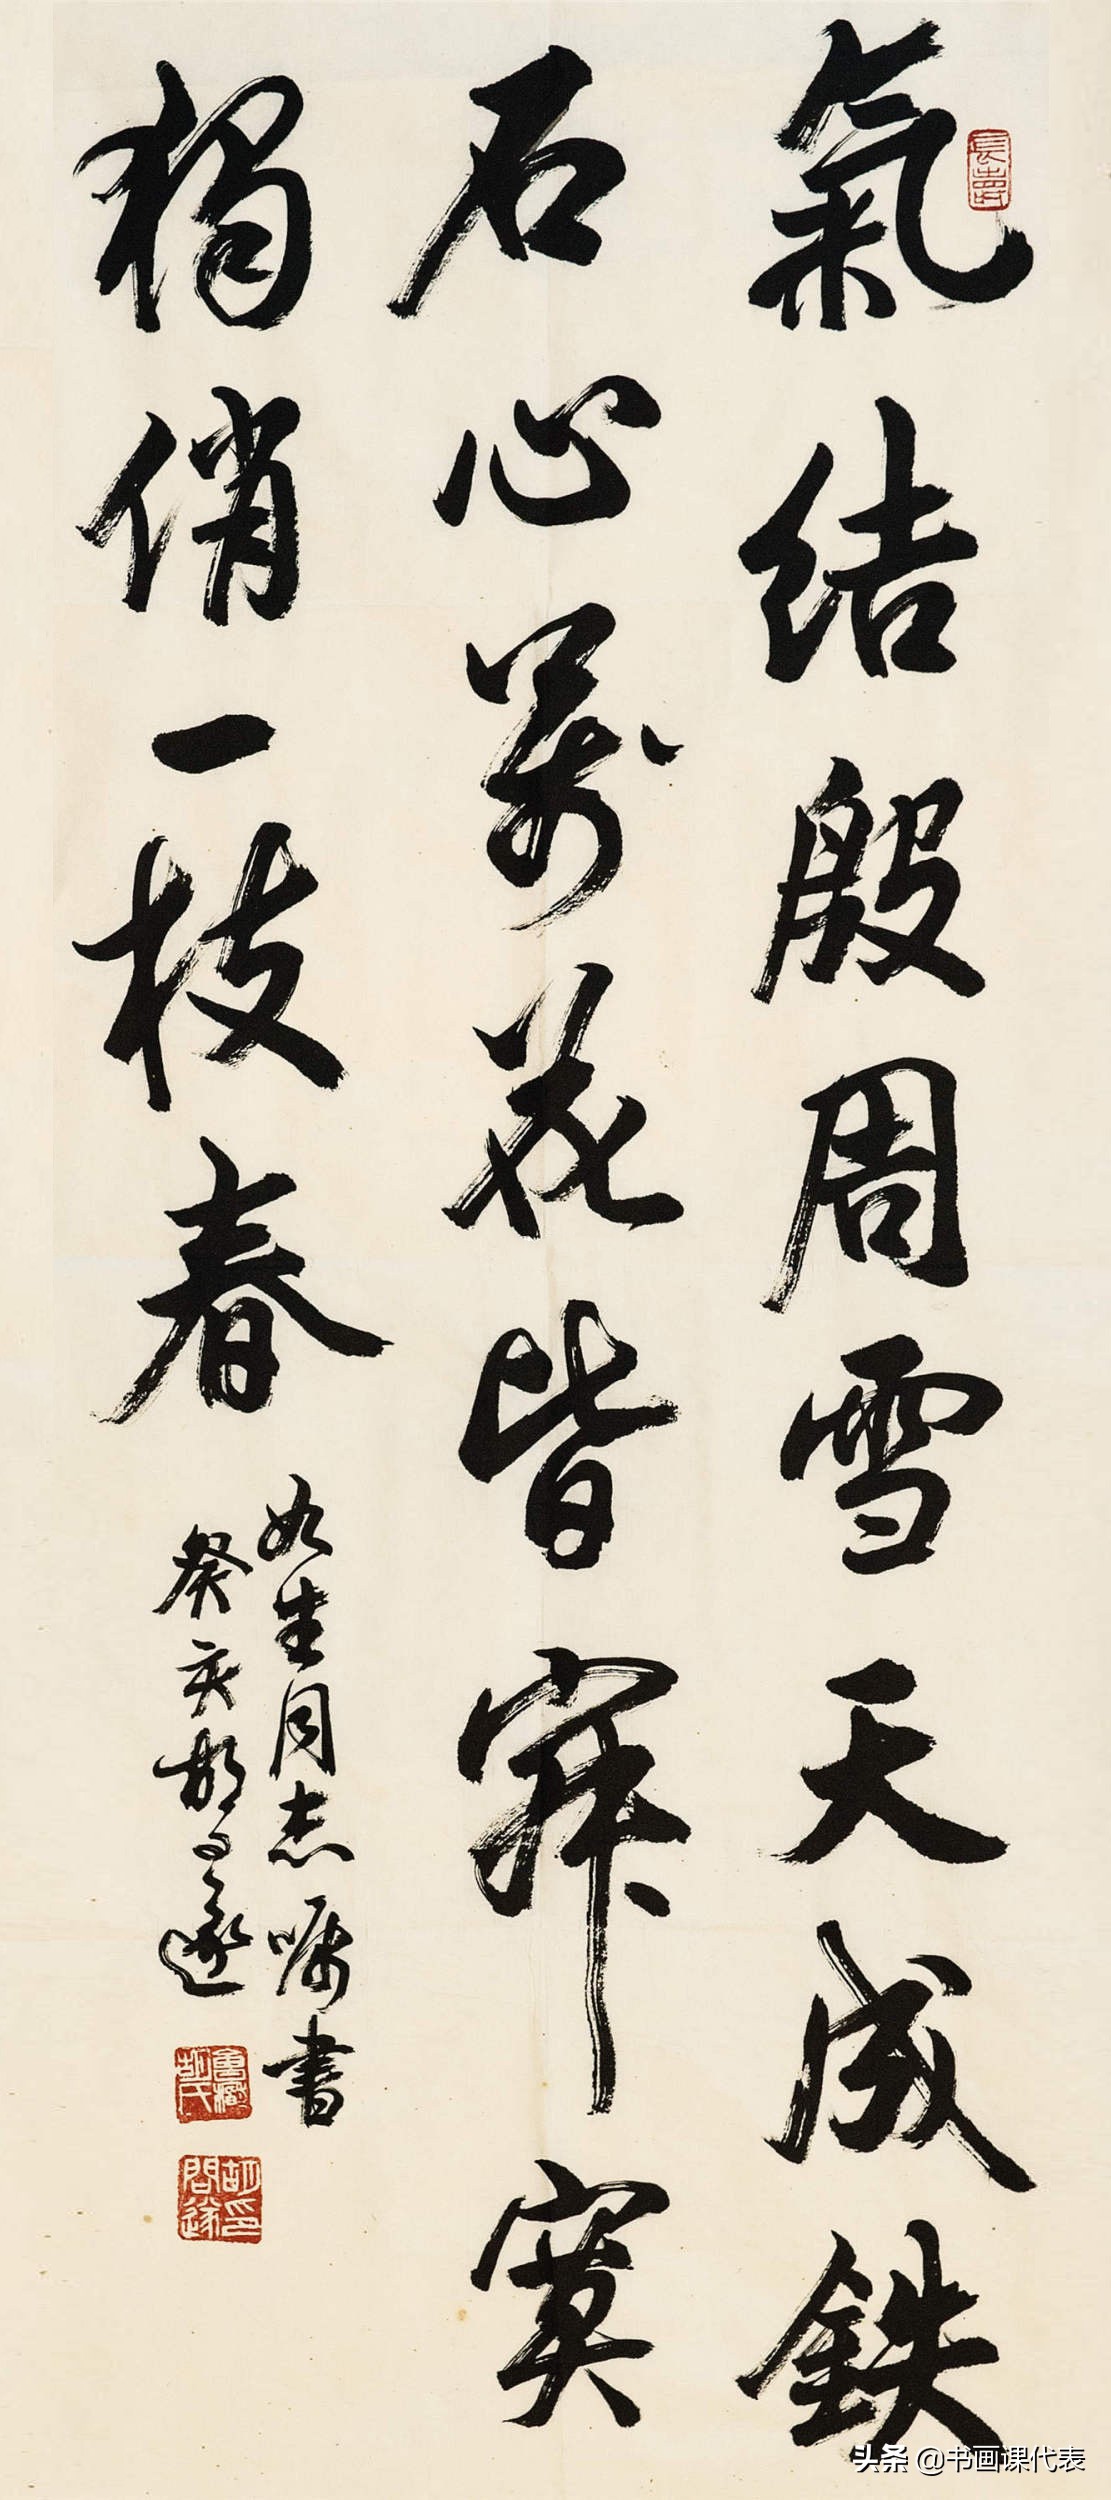 氣結殷周雪天成鉄
石心萬花皆寂寞
獨俏一枝春
如生同志嘱書
癸亥胡問遂
胡印問遂
头条 @书画课代表